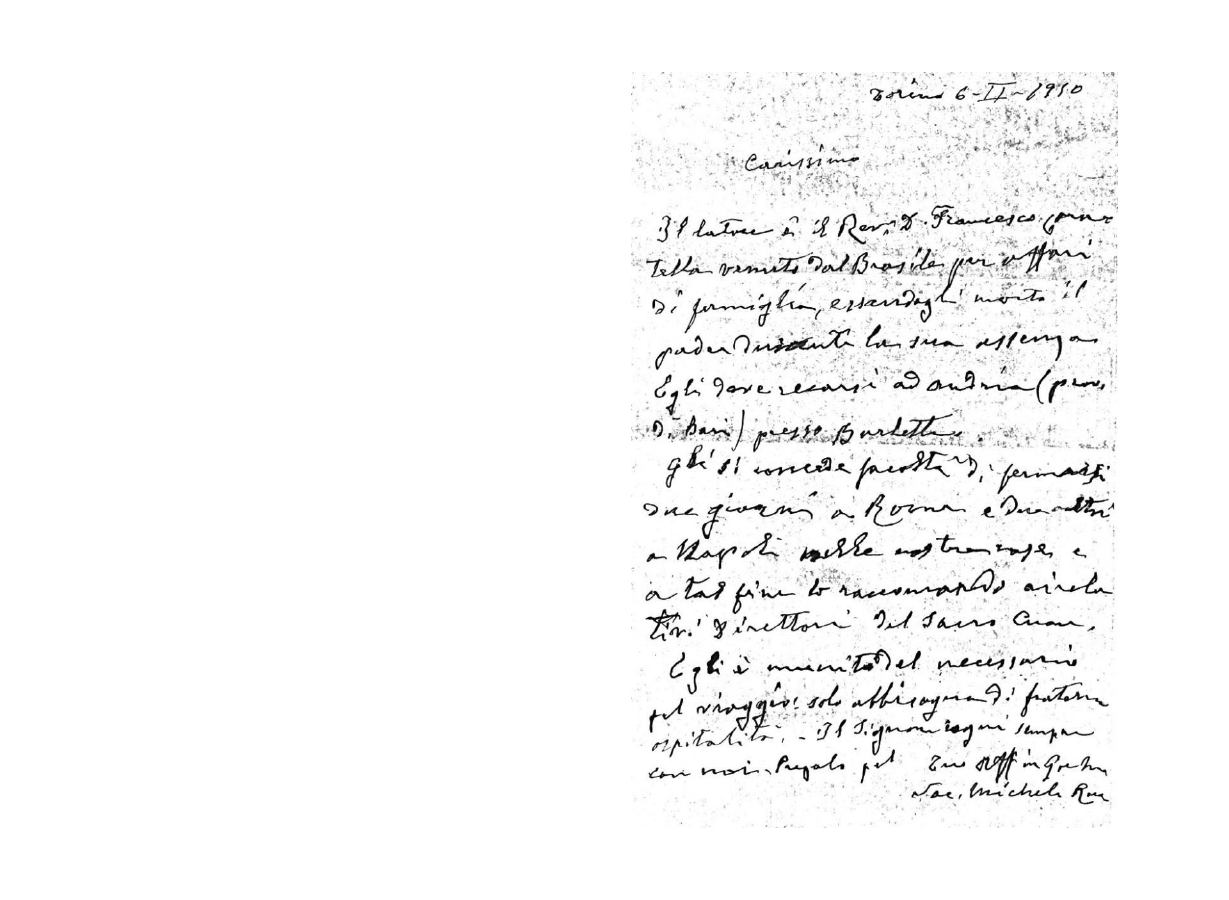 Torino 6-II-1910
Carissimo
Il latore è il Rev. D. Francesco
tella venuto dal Brasile per affari
di famiglia, essendogli morto il
padre durante la sua assenza
Egli deve recarsi ad Andria (prov.
di Bari) presso Barletta.
gli si concede facoltà di fermarsi
due giorni a Roma e due altri
a Napoli nelle nostre case, e
a tal fine lo raccomando ai rela
tivi Direttori del Sacro Cuore.
Egli è munito del necessario
pel viaggio: solo abbisogna di fraterna
ospitalità. - Il Signore regni sempre
con noi. Pregalo pel Tuo aff in G.
Sac. Michele Rua